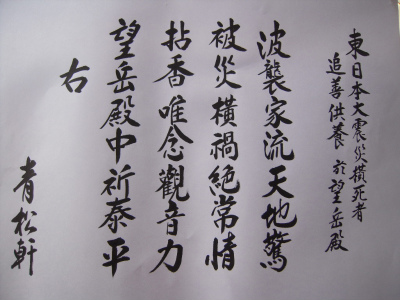 東日本大震災横死者
追善供養 於望岳殿
波襲家流天地驚
被災横禍絶常情
拈香唯念觀音力
望岳殿中祈泰平
右
青松軒